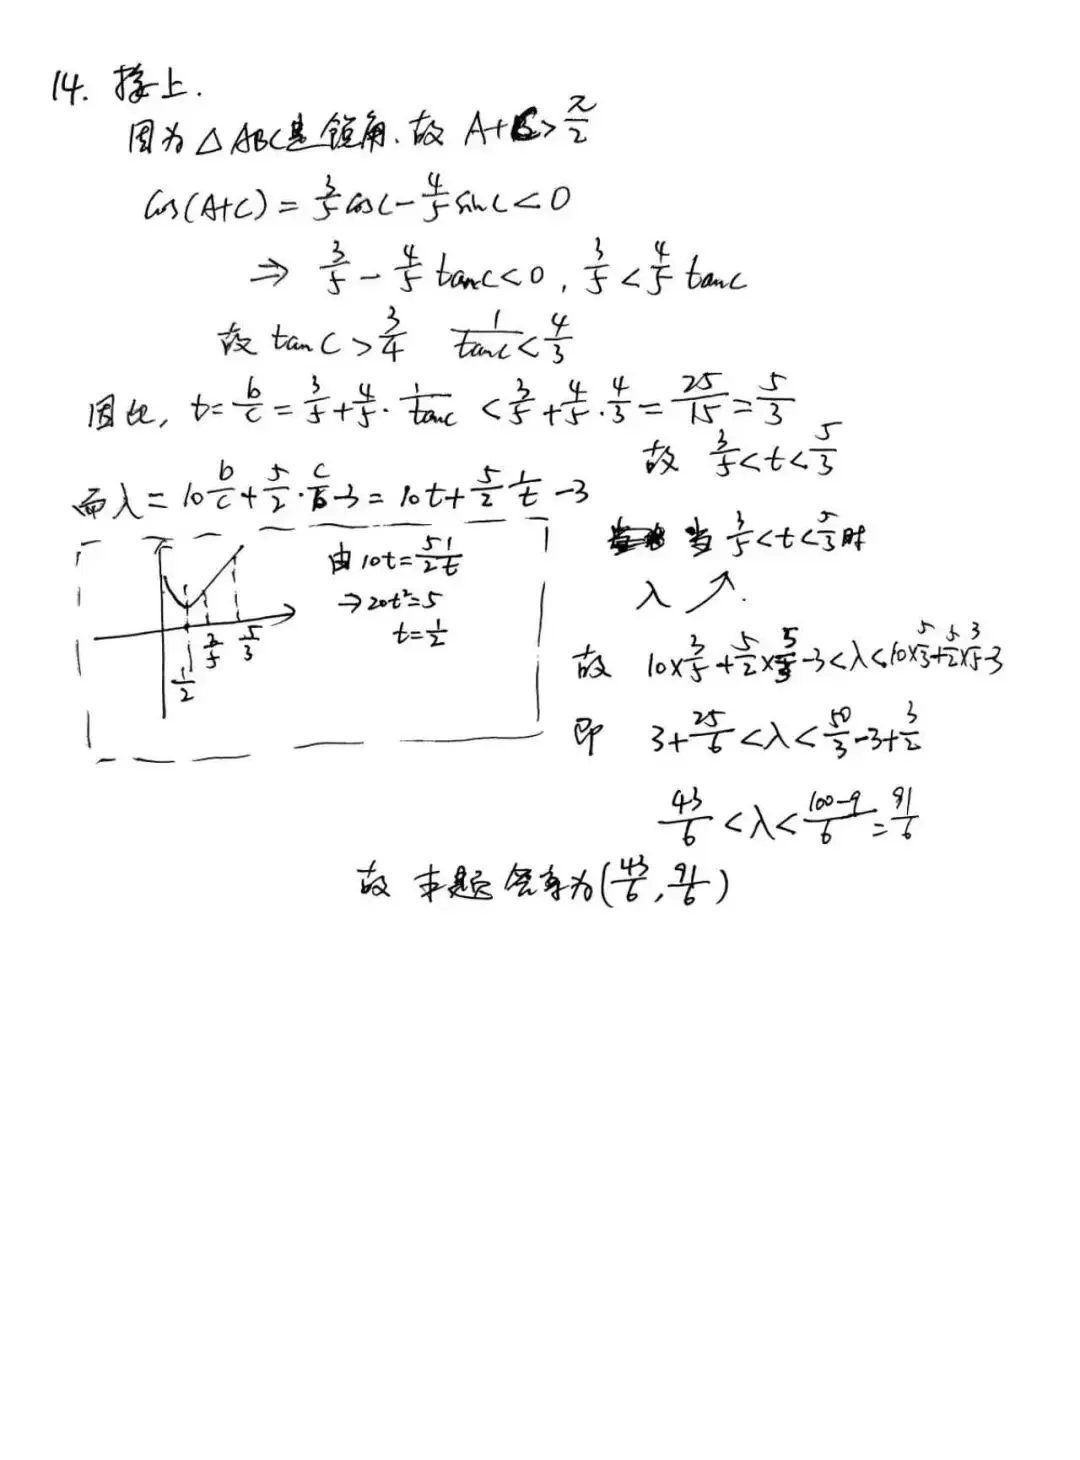 14. 接上.
因为△ABC是锐角.故 A+C>π/2
cos(A+C) = 3/5 cosC - 4/5 sinC < 0
⇒ 3/5 - 4/5 tanC < 0 , 3/5 < 4/5 tanC
故 tanC > 3/4  1/tanC < 4/3
因此, t = b/c = 3/5 + 4/5 · 1/tanC < 3/5 + 4/5 · 4/3 = 25/15 = 5/3
故 3/5 < t < 5/3
而λ = 10 b/c + 5/2 · c/b - 3 = 10t + 5/2 1/t - 3
当 3/5 < t < 5/3 时
λ ↗.
由 10t = 5/2 1/t
⇒ 20t² = 5
t = 1/2
1/2 3/5 5/3
故 10×3/5 + 5/2×5/3 - 3 < λ < 10×5/3 + 5/2×3/5 - 3
即 3 + 25/6 < λ < 50/3 - 3 + 3/2
43/6 < λ < (100-9)/6 = 91/6
故 本题答案为 (43/6, 91/6)